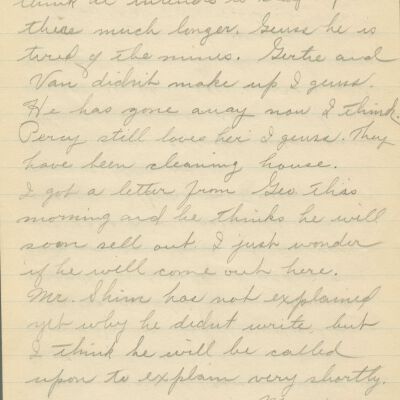 think he intends to
there much longer. Guess he is
tired of the mines. Gertie and
Van didn't make up I guess.
He has gone away now I think.
Percy still loves her I guess. They
have been cleaning house.
I got a letter from Geo. this
morning and he thinks he will
soon sell out. I just wonder
if he will come out here.
Mr. Shim has not explained
yet why he didnt write, but
I think he will be called
upon to explain very shortly.